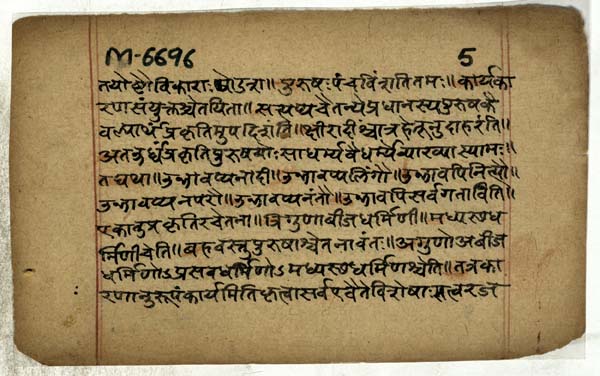 M-6696 5
विकाराः पुरुषः पंचविंशतितमः॥ कार्यका
रणसंयुक्तश्चेतयिता॥ सत्यप्यचैतन्ये प्रधानस्य पुरुषकै
वल्यार्थं प्रकृतिमुपदिशंति॥ क्षीरादींश्चात्र हेतूनुदाहरंति॥
अतऊर्ध्वं प्रकृतिपुरुषयोः साधर्म्यवैधर्म्ये व्याख्यास्यामः॥
तद्यथा॥ उभावप्यनादी॥ उभावप्यलिंगौ॥ उभावपिनित्यौ॥
उभावप्यनपरौ॥ उभावप्यनंतौ॥ उभावपिसर्वगताविति॥
एकातुप्रकृतिरचेतना॥ त्रिगुणाबीजधर्मिणी॥ मध्यस्थध
र्मिणीचेति॥ बहवस्तुपुरुषाश्चेतनावंतः॥ अगुणोअबीज
धर्मिणोऽप्रसवधर्मिणोऽमध्यस्थधर्मिणश्चेति॥ तत्रका
रणानुरूपंकार्यमितिकृत्वासर्वएवैतेविशेषाः सत्वरज